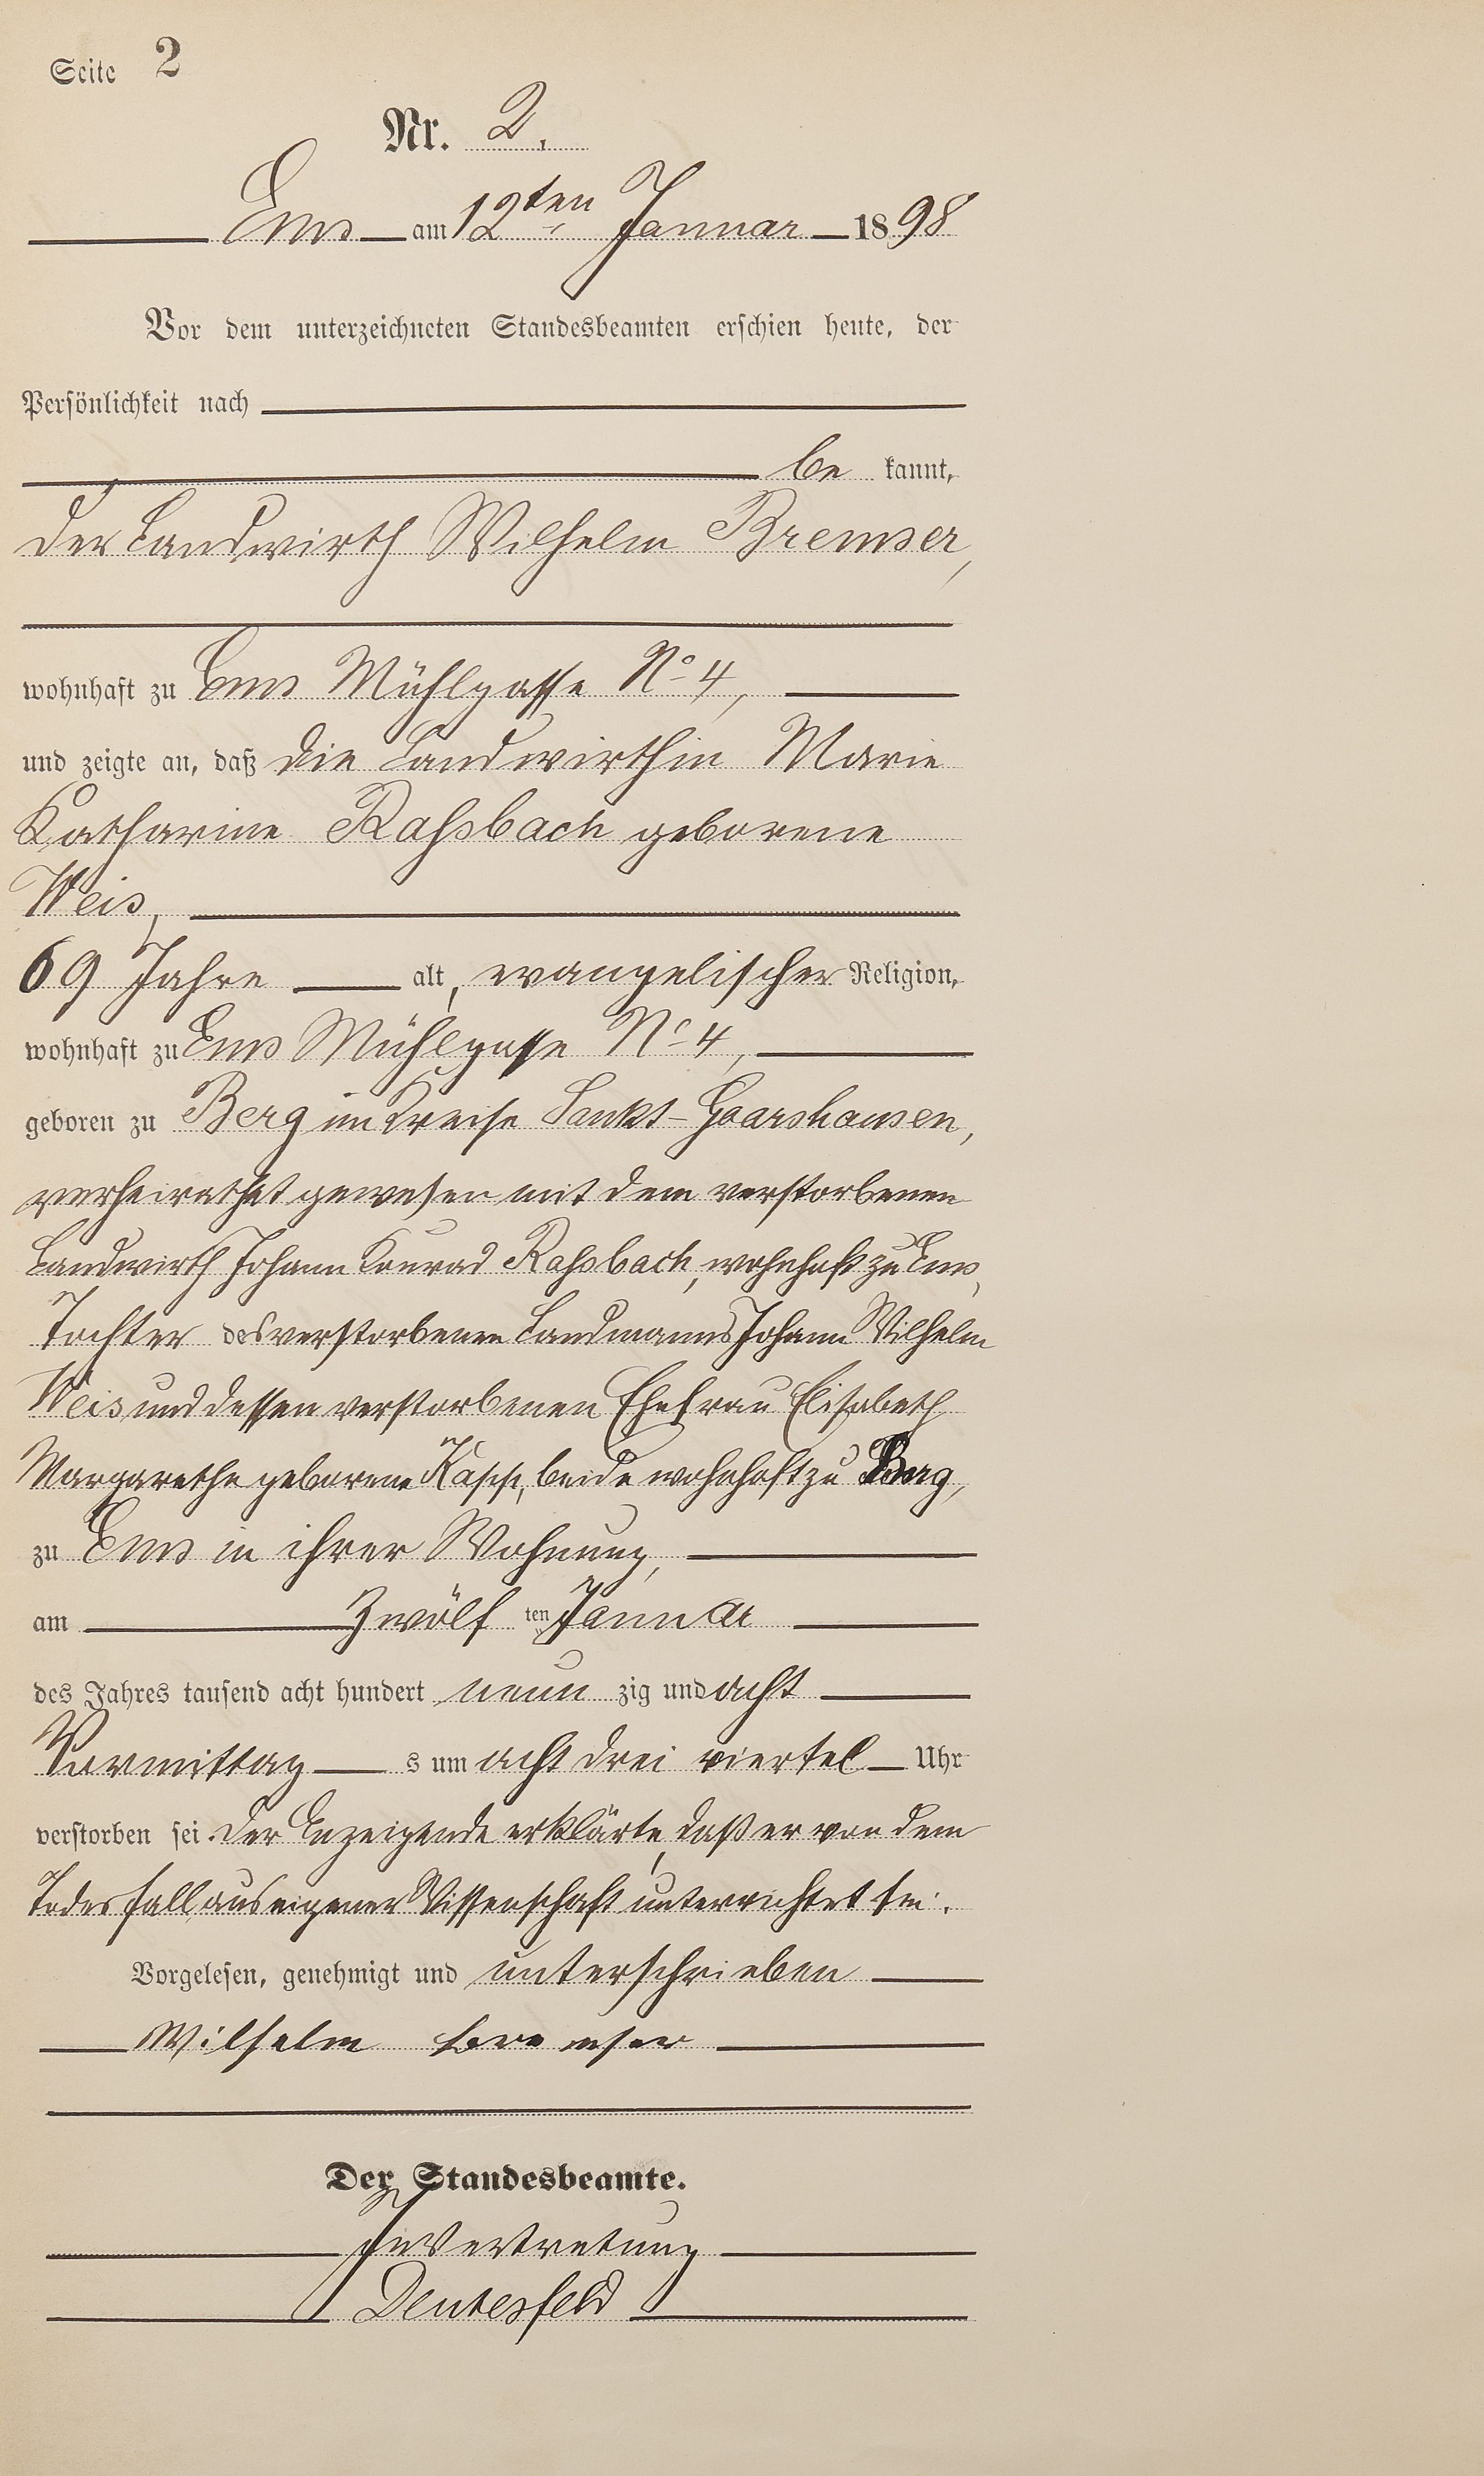 Seite 2
Nr. 2.
Ems am 12ten Januar 1898
Vor dem unterzeichneten Standesbeamten erschien heute, der
Persönlichkeit nach
be kannt,
der Landwirth Wilhelm Bremser,
wohnhaft zu Ems Mühlgasse No 4,
und zeigte an, daß die Landwirthin Marie
Katharine Rahsbach geborene
Weis,
69 Jahre alt, evangelischer Religion,
wohnhaft zu Ems Mühlgasse No 4,
geboren zu Berg im Kreise Sankt-Goarshausen,
verheirathet gewesen mit dem verstorbenen
Landwirth Johann Konrad Rahsbach, wohnhaft zu Ems,
Tochter des verstorbenen Landmanns Johann Wilhelm
Weis und dessen verstorbenen Ehefrau Elisabeth
Margarethe geborene Kapp, beide wohnhaft zu Berg,
zu Ems in ihrer Wohnung,
am Zwölf ten Januar
des Jahres tausend acht hundert neun zig und acht
Vormittag s um acht drei viertel Uhr
verstorben sei. Der Anzeigende erklärte, daß er von dem
Todesfall aus eigener Wissenschaft unterrichtet sei.
Vorgelesen, genehmigt und unterschrieben
Wilhelm Bremser
Der Standesbeamte.
In Vertretung
Deutesfeld